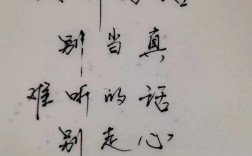 别当真
难听的话
别走心